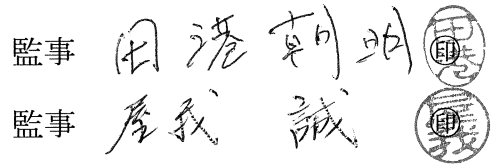 監事 田港朝明 ㊞
監事 屋我 誠 ㊞